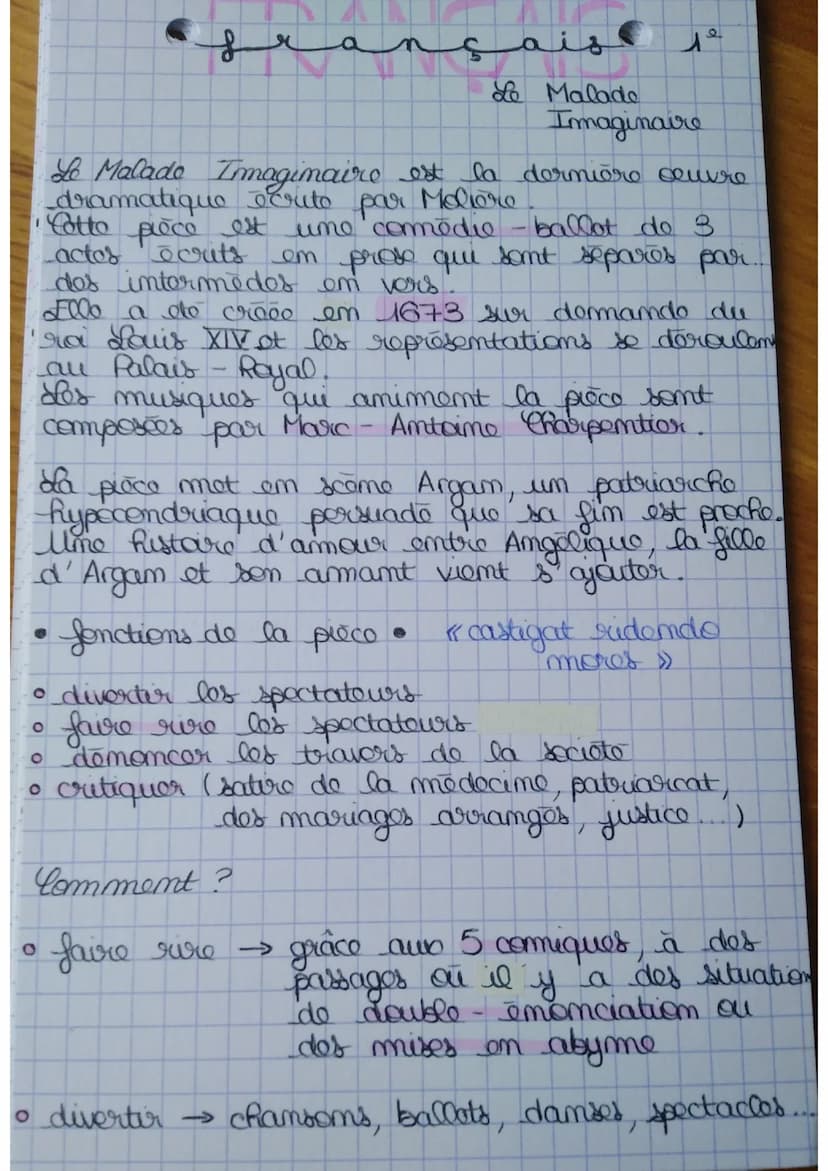 français 1°
Le Malade
Imaginaire
Le Malade Imaginaire est la dernière oeuvre
dramatique écrite par Molière.
Cette pièce est une comédie-ballet de 3
actes écrits en prose qui sont séparés par
des intermèdes en vers.
Elle a été créée en 1673 sur demande du
roi Louis XIV et les représentations se déroulent
au Palais-Royal.
Les musiques qui animent la pièce sont
composées par Marc-Antoine Charpentier.
La pièce met en scène Argan, un patriarche
hypocondriaque persuadé que sa fin est proche.
Une histoire d'amour entre Angélique, la fille
d'Argan et son amant vient s'ajouter.
• fonctions de la pièce • « castigat ridendo
mores »
o divertir les spectateurs
o faire rire les spectateurs
o dénoncer les travers de la société
o critiquer (satire de la médecine, patriarcat,
des mariages arrangés, justice...)
Comment ?
o faire rire → grâce aux 5 comiques, à des
passages où il y a des situation
de double-énonciation ou
des mises en abyme
o divertir → chansons, ballets, danses, spectacles...